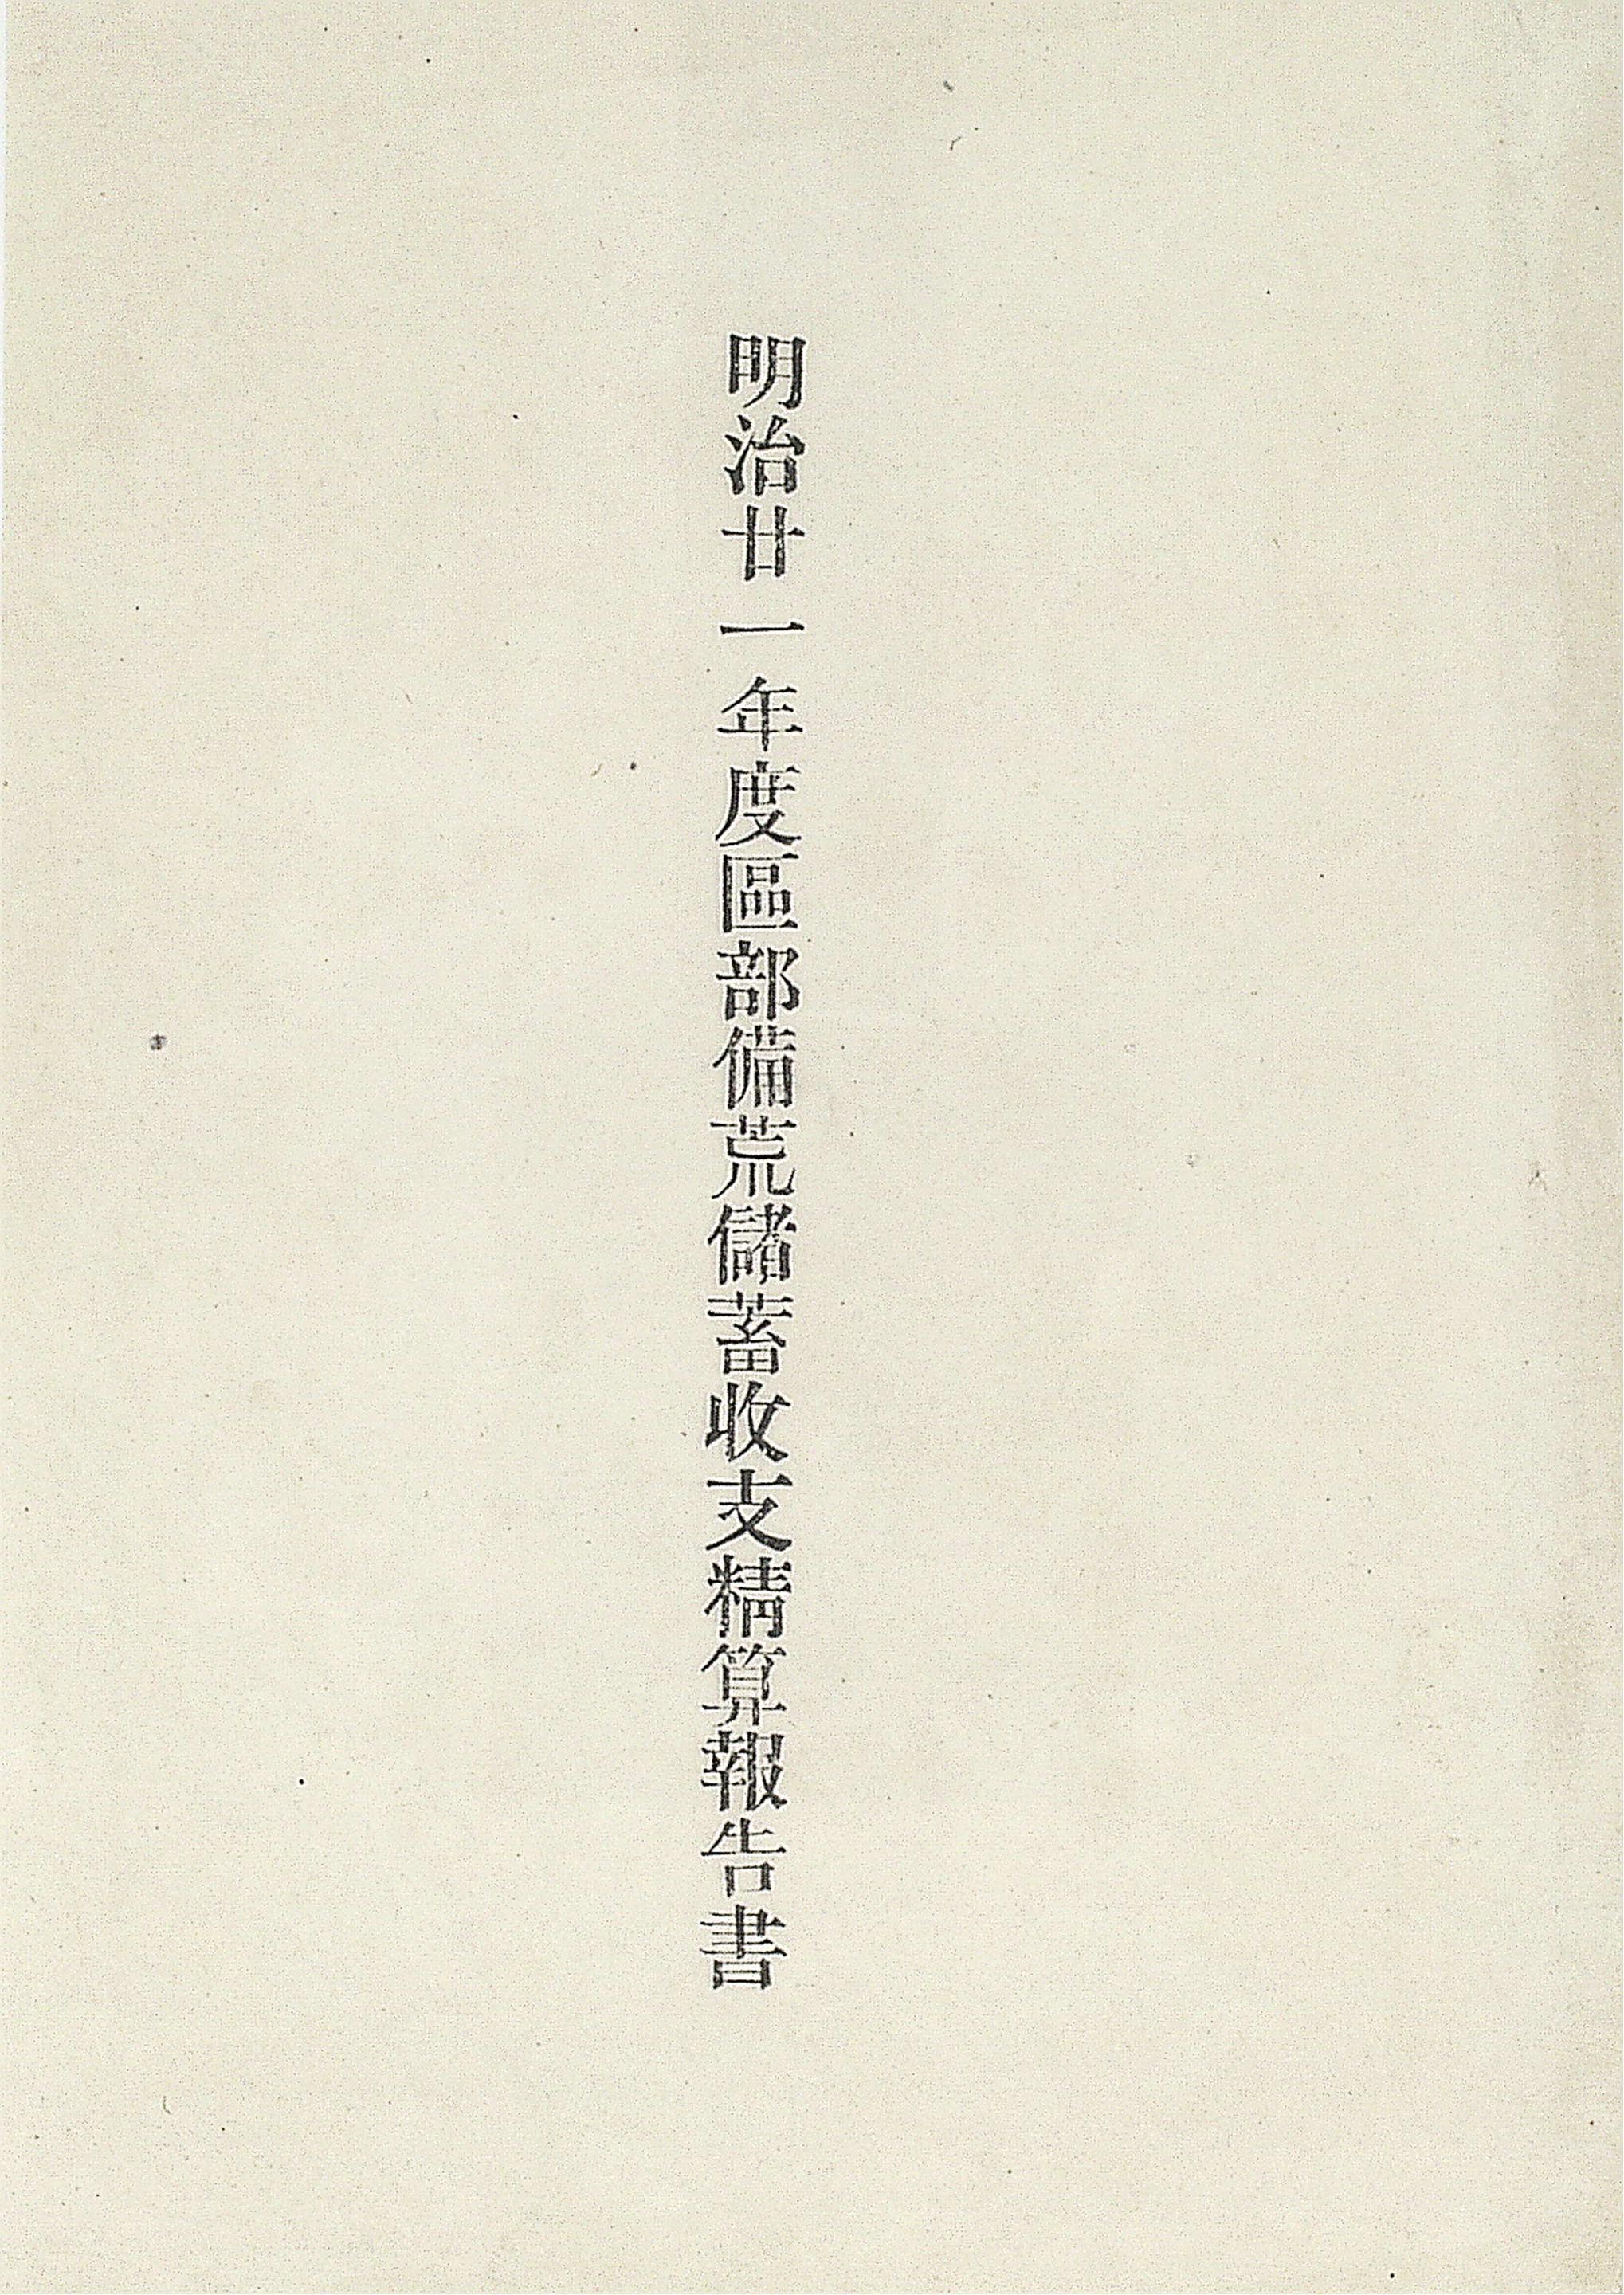 明治廿一年度區部備荒儲蓄收支精算報告書